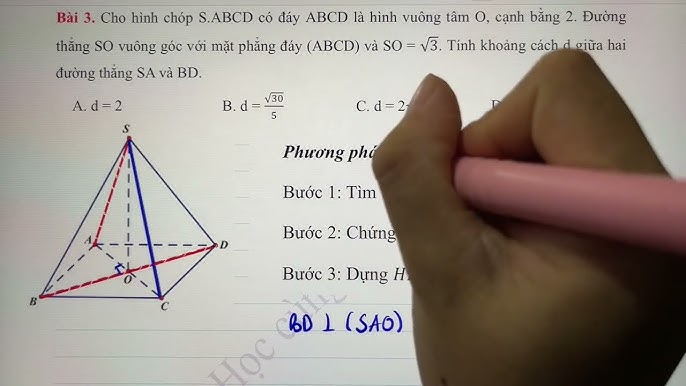 Bài 3. Cho hình chóp S.ABCD có đáy ABCD là hình vuông tâm O, cạnh bằng 2. Đường
thẳng SO vuông góc với mặt phẳng đáy (ABCD) và SO = √3. Tính khoảng cách d giữa hai
đường thẳng SA và BD.
A. d = 2 B. d = √30/5 C. d = 2
S
A
D
O
B
C
Phương phá
Bước 1: Tìm
Bước 2: Chứng
Bước 3: Dựng H
BD ⊥ (SAO)
Học cùng